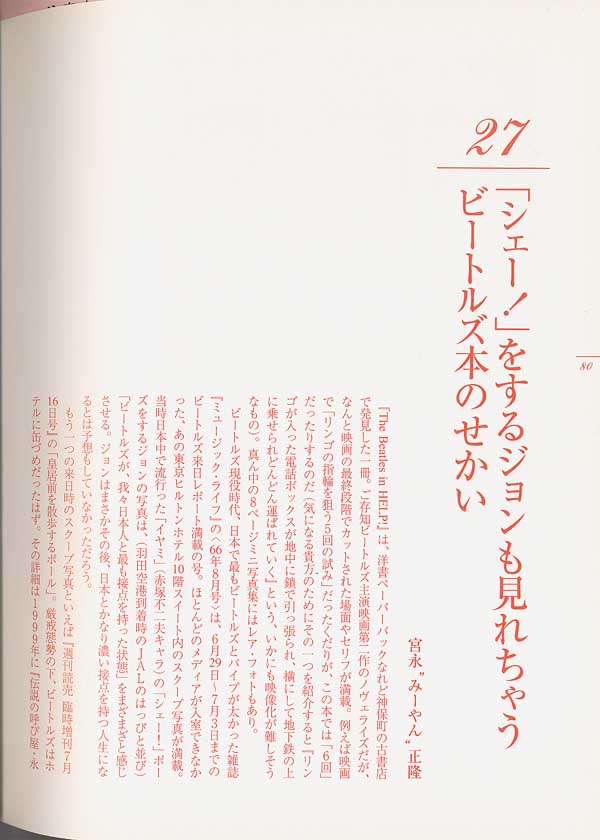 27
「シェー!」をするジョンも見れちゃう
ビートルズ本のせかい
宮永"みーやん"正隆
80
『The Beatles in HELP!』は、洋書ペーパーバックなれど神保町の古書店
で発見した一冊。ご存知ビートルズ主演映画第二作のノヴェライズだが、
なんと映画の最終段階でカットされた場面やセリフが満載。例えば映画
で「リンゴの指輪を狙う5回の試み」だったくだりが、この本では「6回」
だったりするのだ(気になる貴方のためにその一つを紹介すると『リン
ゴが入った電話ボックスが地中に鎖で引っ張られ、横にして地下鉄の上
に乗せられどんどん運ばれていく』という、いかにも映像化が難しそう
なもの)。真ん中の8ページミニ写真集にはレア・フォトもあり。
ビートルズ現役時代、日本で最もビートルズとパイプが太かった雑誌
『ミュージック・ライフ』の〈66年8月号〉は、6月29日〜7月3日までの
ビートルズ来日レポート満載の号。ほとんどのメディアが入室できなか
った、あの東京ヒルトンホテル10階スイート内のスクープ写真が満載。
当時日本中で流行った「イヤミ」(赤塚不二夫キャラ)の「シェー!」ポー
ズをするジョンの写真は、(羽田空港到着時のJALのはっぴと並び)
「ビートルズが、我々日本人と最も接点を持った状態」をまざまざと感じ
させる。ジョンはまさかその後、日本とかなり濃い接点を持つ人生にな
るとは予想もしていなかっただろう。
もう一つの来日時のスクープ写真といえば『週刊読売 臨時増刊7月
16日号』の「皇居前を散歩するポール」。厳戒態勢の下、ビートルズはホ
テルに缶づめだったはず。その詳細は1999年に『伝説の呼び屋・永